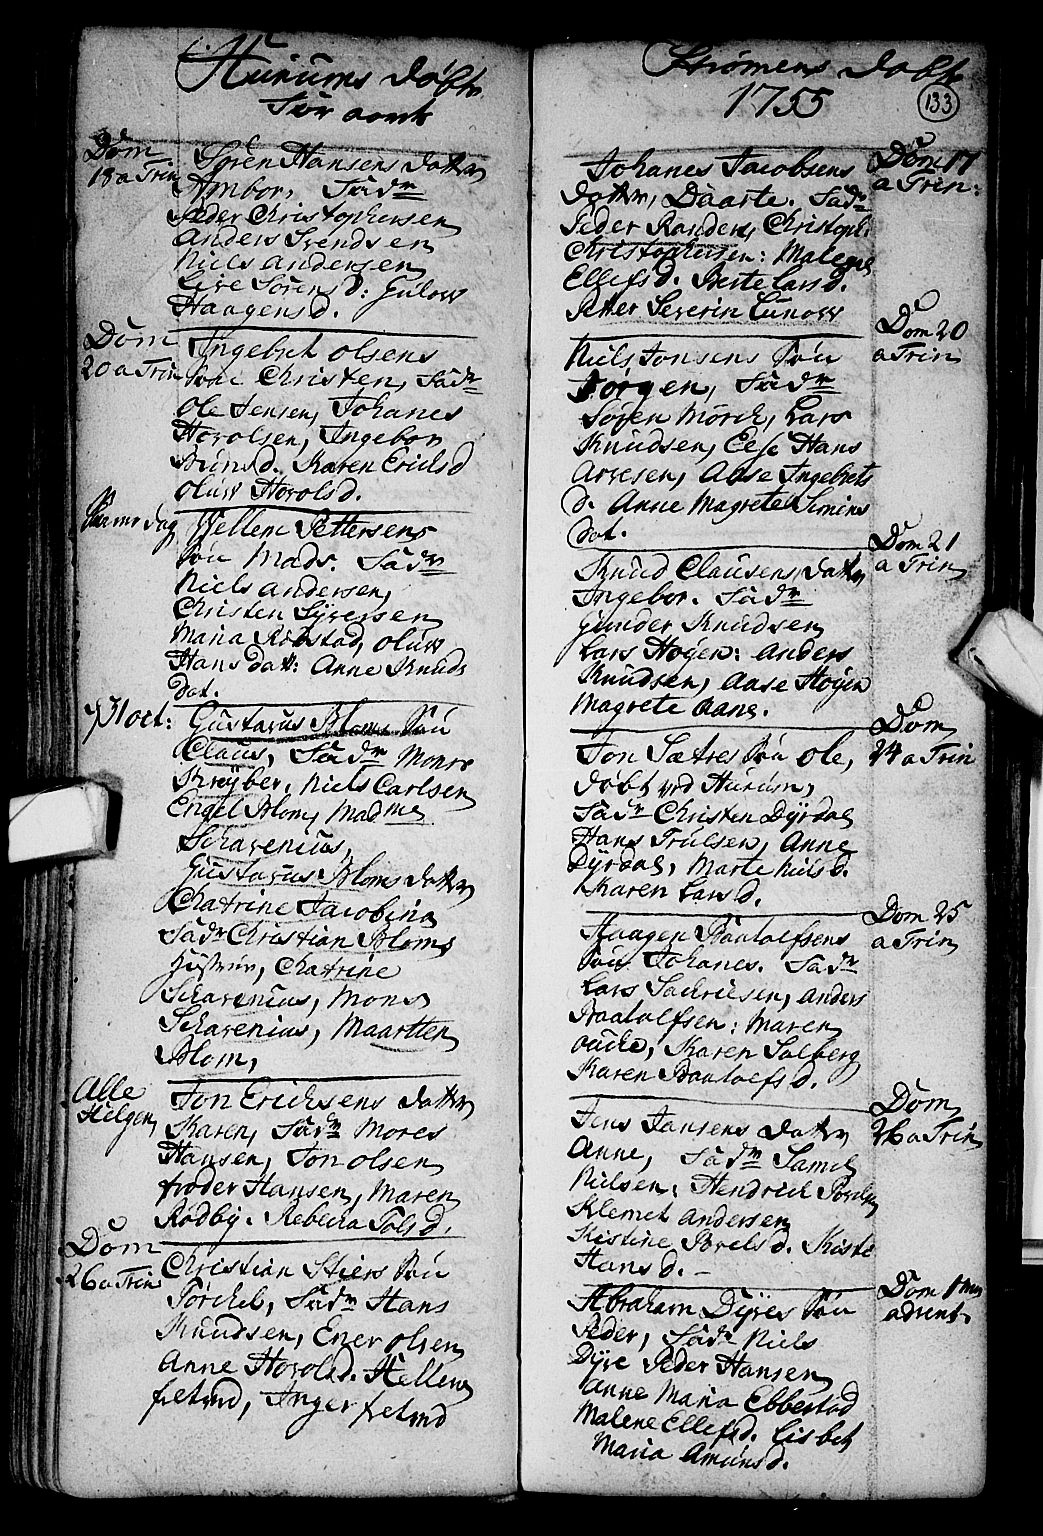 Hurums Døbte
Dom
18 a Trin
Søren Hansens datter
Ambor, Fadr
Peder Christophersen
Anders Svendsen
Niels Andersen
Live Sørensd: Gulow
Haagensd.
Dom
20 a Trin
Ingebret Olsens
søn Christen, Fadr
Ole Jensen, Johanes
Hovolsen, Ingebor
Karen Ericksd
Oluw Hovolsd.
Vellem Pettersens
søn Mads. Fadr
Niels Andersen,
Christen Syversen
Maria Rodstad, Oluw
Hansdat: Anne Knuds
dat.
31 oct:
Gustavus Bloms søn
Claus, Fadr Monsr
Kreyber, Niels Carlsen
Engel Blom, Madme
Schavenius,
Gustavus Bloms datter
Chatrine Jacobina
Fadr Christian Bloms
Hustrue, Chatrine
Schavenius, Mons
Schavenius, Maartten
Blom,
Alle
Helgen
Jon Ericksens datter
Karen, Fadr Mores
Hansen, Jon Olsen
Froder Hansen, Maren
Rødby. Rebecca Tolsd.
Dom
26 a Trin
Christian Stiers søn
Torchel, Fadr Hans
Knudsen, Ener Olsen
Anne Hovolsd. Hellene
Inger
Strømens Døbte
1755
133
Johanes Jacobsens
datter, Daarte. Fadr
Peder Randers, Christoph
Christophersen: Malene
Ellefsd. Berte Larsd.
Petter Severin Lunow
Dom 17
a Trin:
Niels Jonsens søn
Jørgen, Fadr
Søren Mørch, Lars
Knudsen, Else Hans
Arvesen, Aase Ingebrets
d. Anne Magrete Simens
dat.
Dom 20
a Trin
Knud Clausens datter
Ingebor. Fadr
Gunder Knudsen
Lars Høyen: Anders
Knudsen, Aase Høyen
Magrete Aane.
Dom 21
a Trin
Jon Sætres søn Ole,
døbt ved Hurum,
Fadr Christen Dyrdal
Hans Trulsen, Anne
Dyrdal, Marte Nielsd.
Karen Larsd.
Dom
24 a Trin
Haagen Paalalfsens
søn Johanes. Fadr
Lars Sachriesen, Anders
Paalalfsen: Maren
Karen Solberg
Karen Paalalfsd.
Dom 25
a Trin
Jens Jansens datter
Anne, Fadr Samel
Nielsen, Hendrich
Klemet Andersen
Kistine Povelsd. Kiste
Hansd.
Dom
26 a Trin
Abraham Dyres søn
Peder, Fadr Niels
Dyre Peder Hansen
Anne Maria Ebbestad
Malene Ellefsd. Lisbet
Maria Amunsd.
Dom 1me
advent.